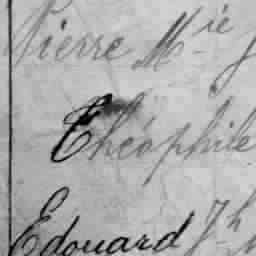 Pierre M ie J
Théophile
Edouard J h